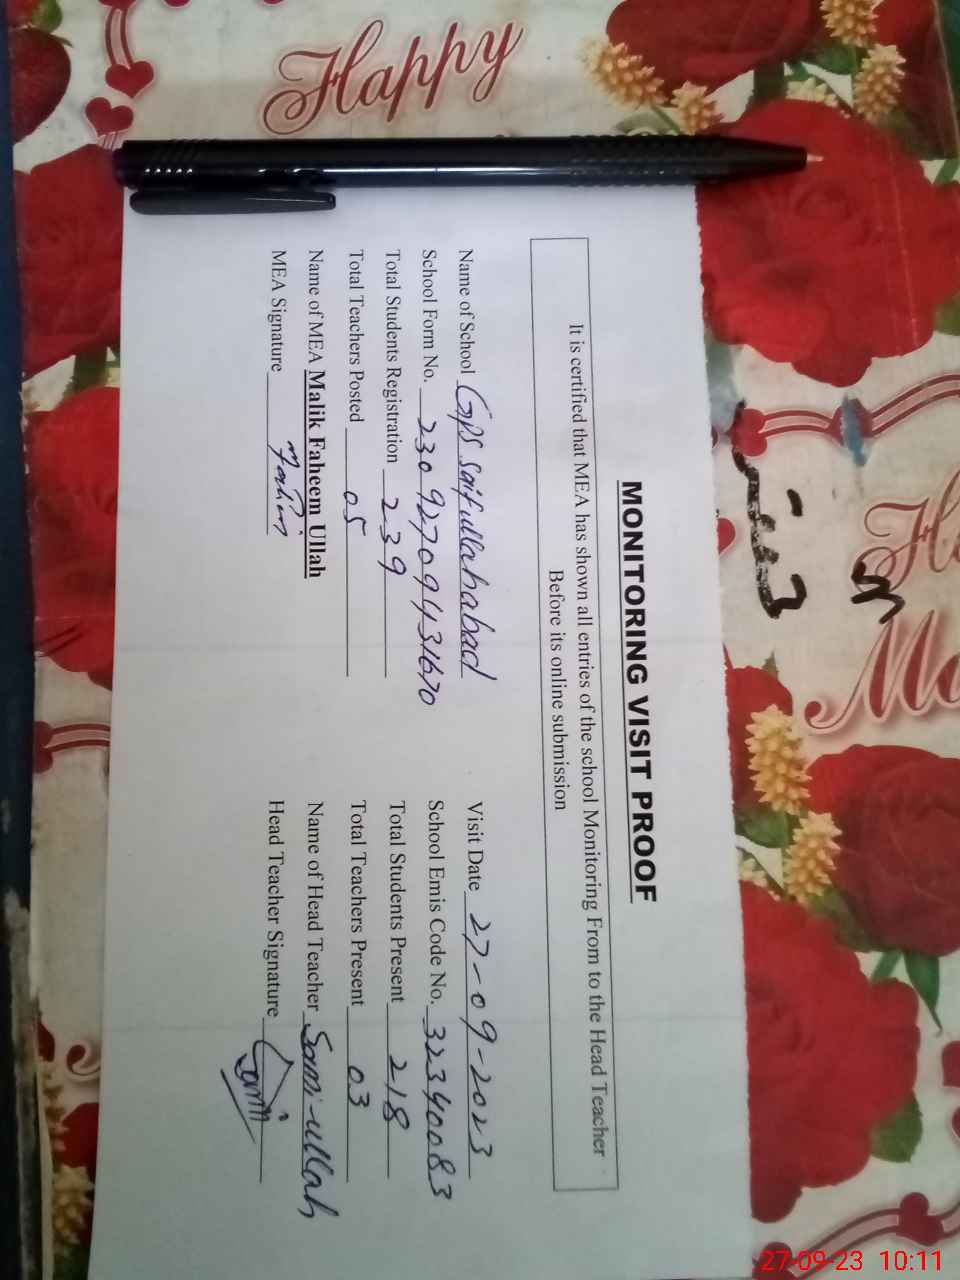 Happy
MONITORING VISIT PROOF
It is certified that MEA has shown all entries of the school Monitoring From to the Head Teacher
Before its online submission
Name of School GPS Saifullahabad Visit Date 27-09-2023
School Form No. 23092709431670 School Emis Code No. 32340083
Total Students Registration 239 Total Students Present 218
Total Teachers Posted 05 Total Teachers Present 03
Name of MEA Malik Faheem Ullah Name of Head Teacher Sami-ullah
MEA Signature Fahim Head Teacher Signature Sami
27-09-23 10:11